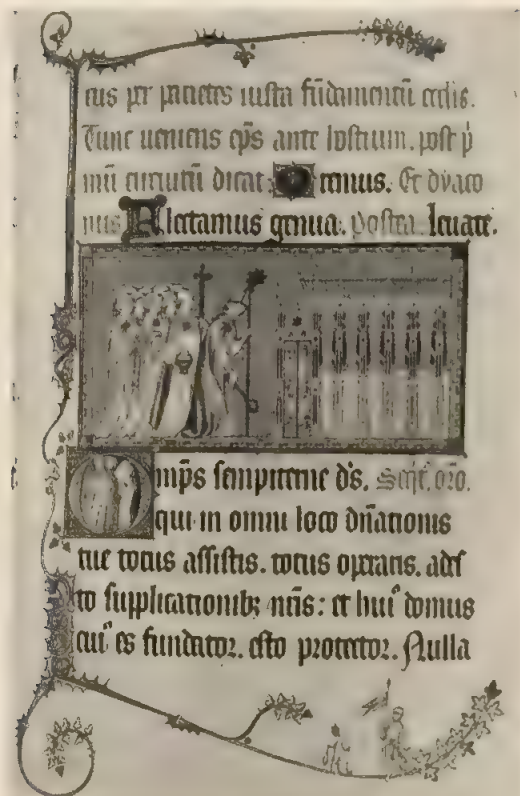 eius per parietes iuxta fūdamentū ecclīe.
Tunc ueniens ep̄s ante hostium. post p̄
mū circuitū dicat Oremus. Et dyaco
nus Flectamus genua. postea. leuate.
Omp̄s sempiterne dſ. Seqͥt̉. oro.
qui in omni loco dn̄ationis
tue totus assistis. totus operaris. ades
to supplicationib; nr̄is: et huiꝰ domus
cuiꝰ es fundator. esto protector. Nulla